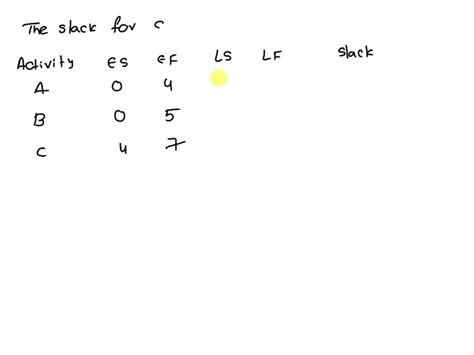 The slack for c
Activity ES EF LS LF slack
A 0 4
B 0 5
C 4 7